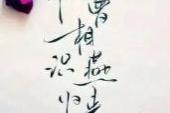 曾相识燕归